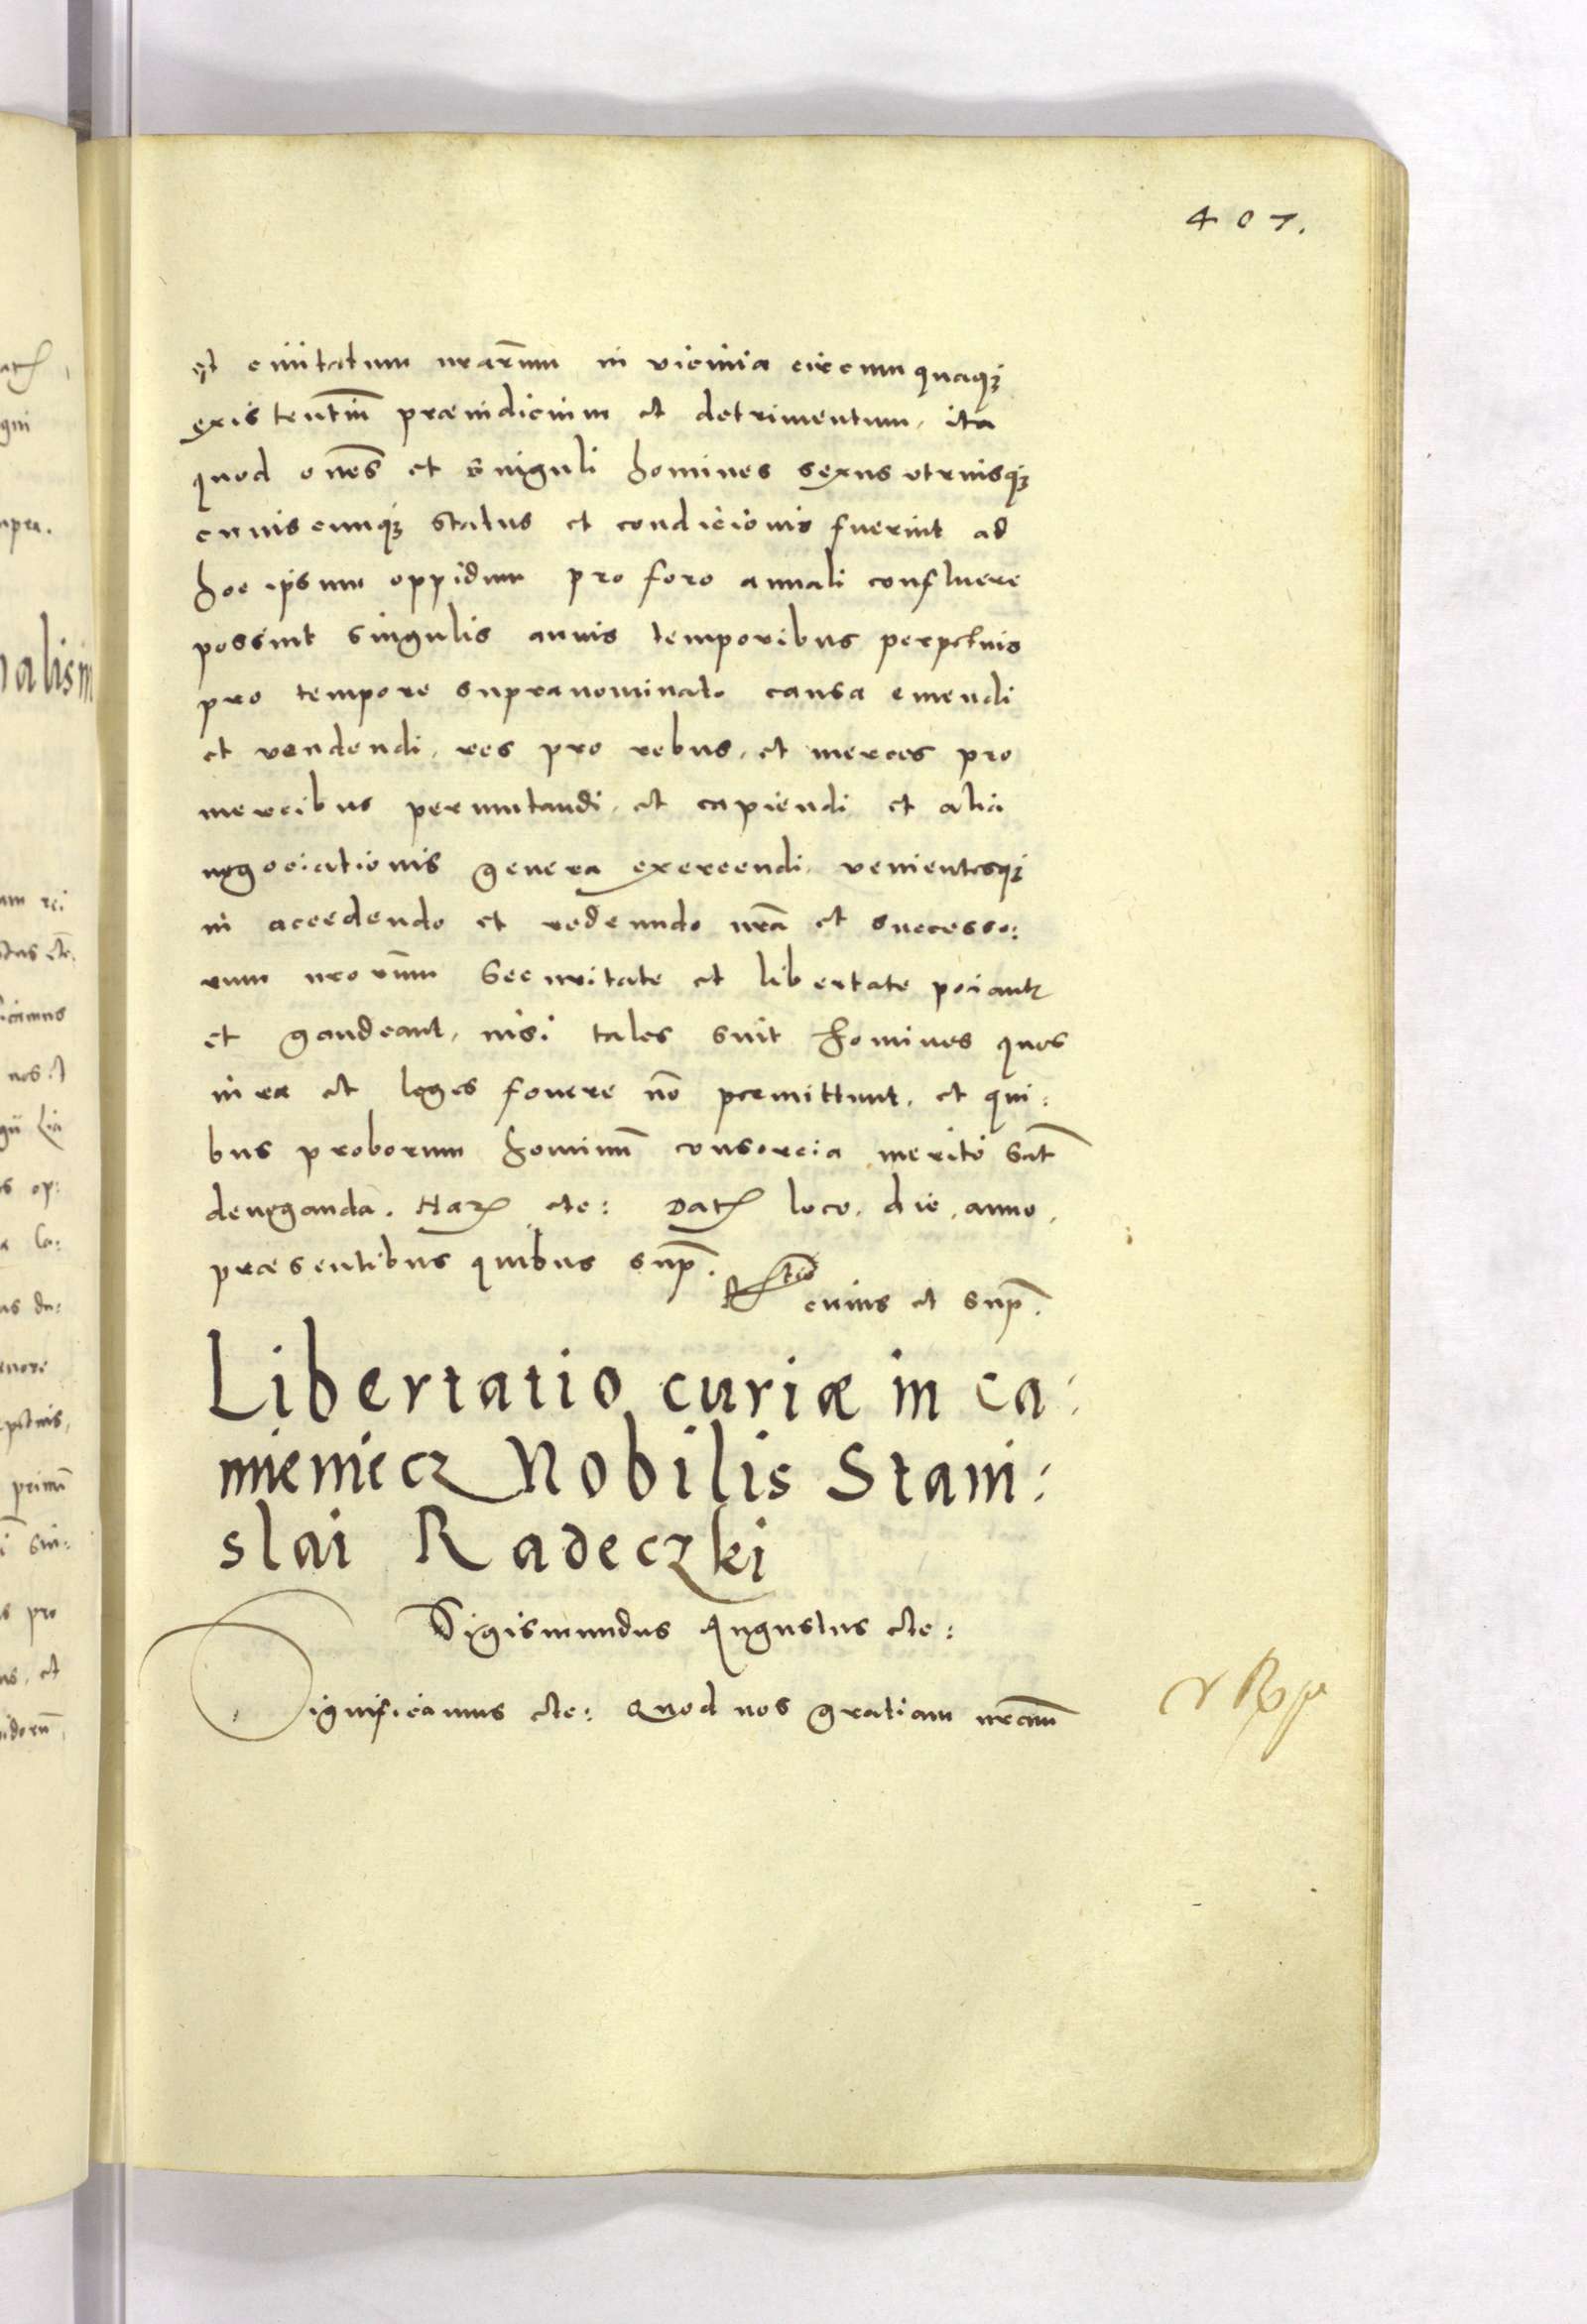 407.
et ciuitatum nrarum in vicinia circumquaqz
existentiu praeiudicium et detrimentum, ita
quod omes et singuli homines sexus utriusqz
cuiuscunqz status et condicionis fuerint ad
hoc ipsum oppidum pro foro annali confluere
possint singulis annis temporibus perpetuis
pro tempore supranominato causa emendi
et vendendi, res pro rebus, et merces pro
mercibus permutandi, et capiendi et alia
negociationis genera exercendi, venientesqz
in accedendo et redeundo nra et successo:
rum nrorum securitate et libertate pociantr
et gaudeant, nisi tales sint homines quos
iura et leges fouere no permittunt, et qui:
bus proborum hominu consorcia merito sut
deneganda. Har etc: Dat loco, die, anno,
praesentibus quibus sup.
Rtio cuius et sup.
Libertatio curiæ in Ca:
mieniecz Nobilis Stani:
slai Radeczki
Sigismundus Augustus etc:
Significamus etc: Quod nos gratiam nram